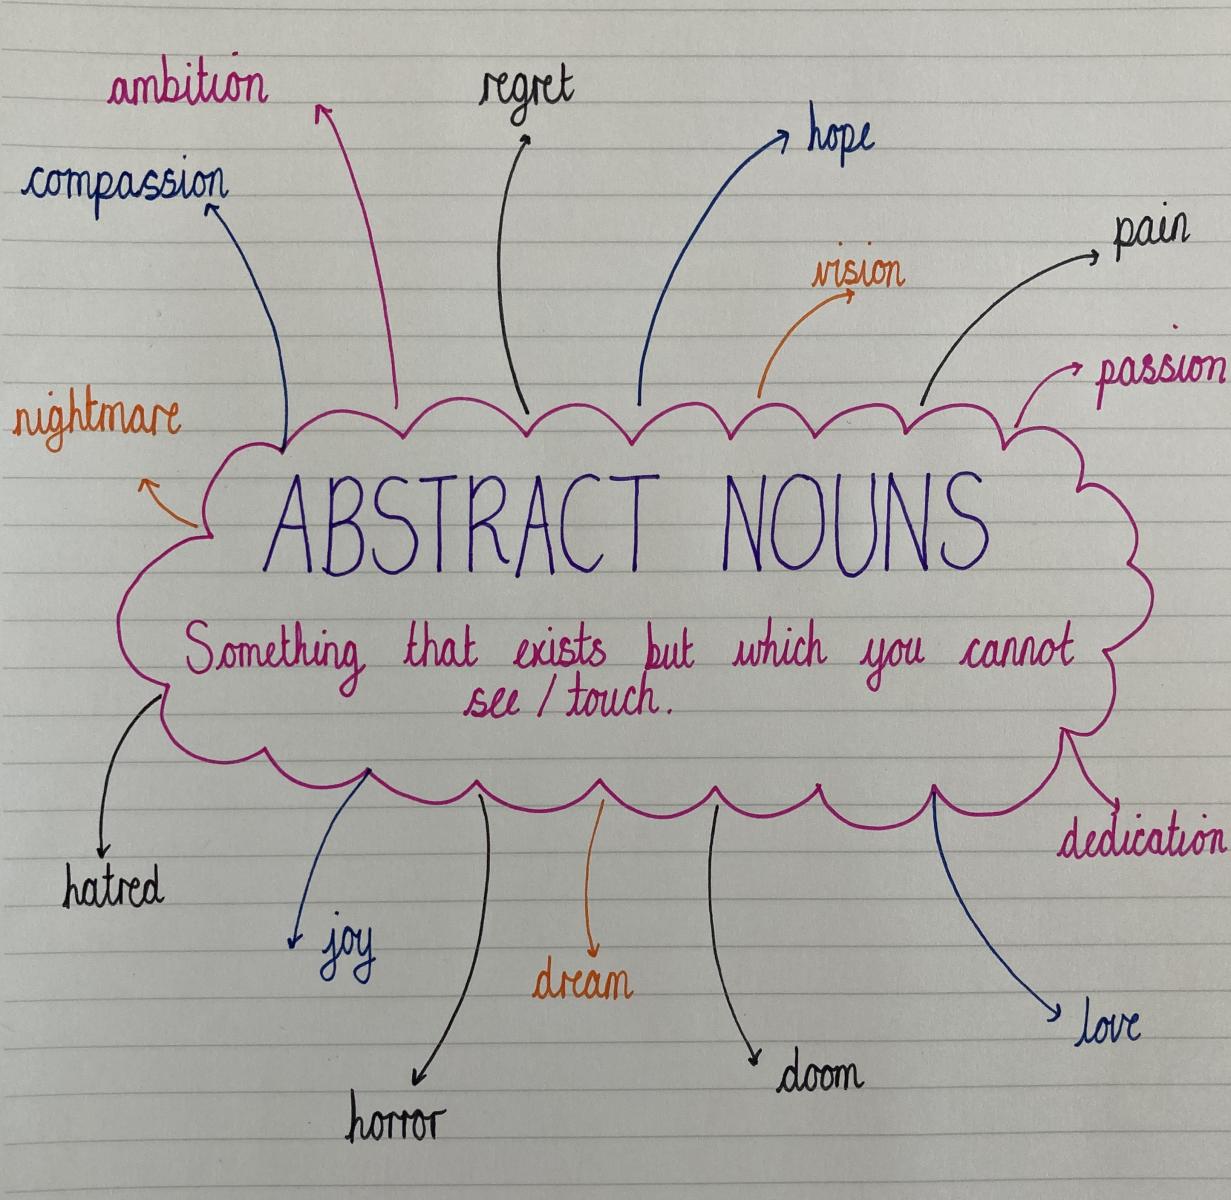 ambition
regret
hope
compassion
pain
vision
passion
nightmare
ABSTRACT NOUNS
Something that exists but which you cannot
see / touch.
dedication
hatred
joy
dream
love
doom
horror